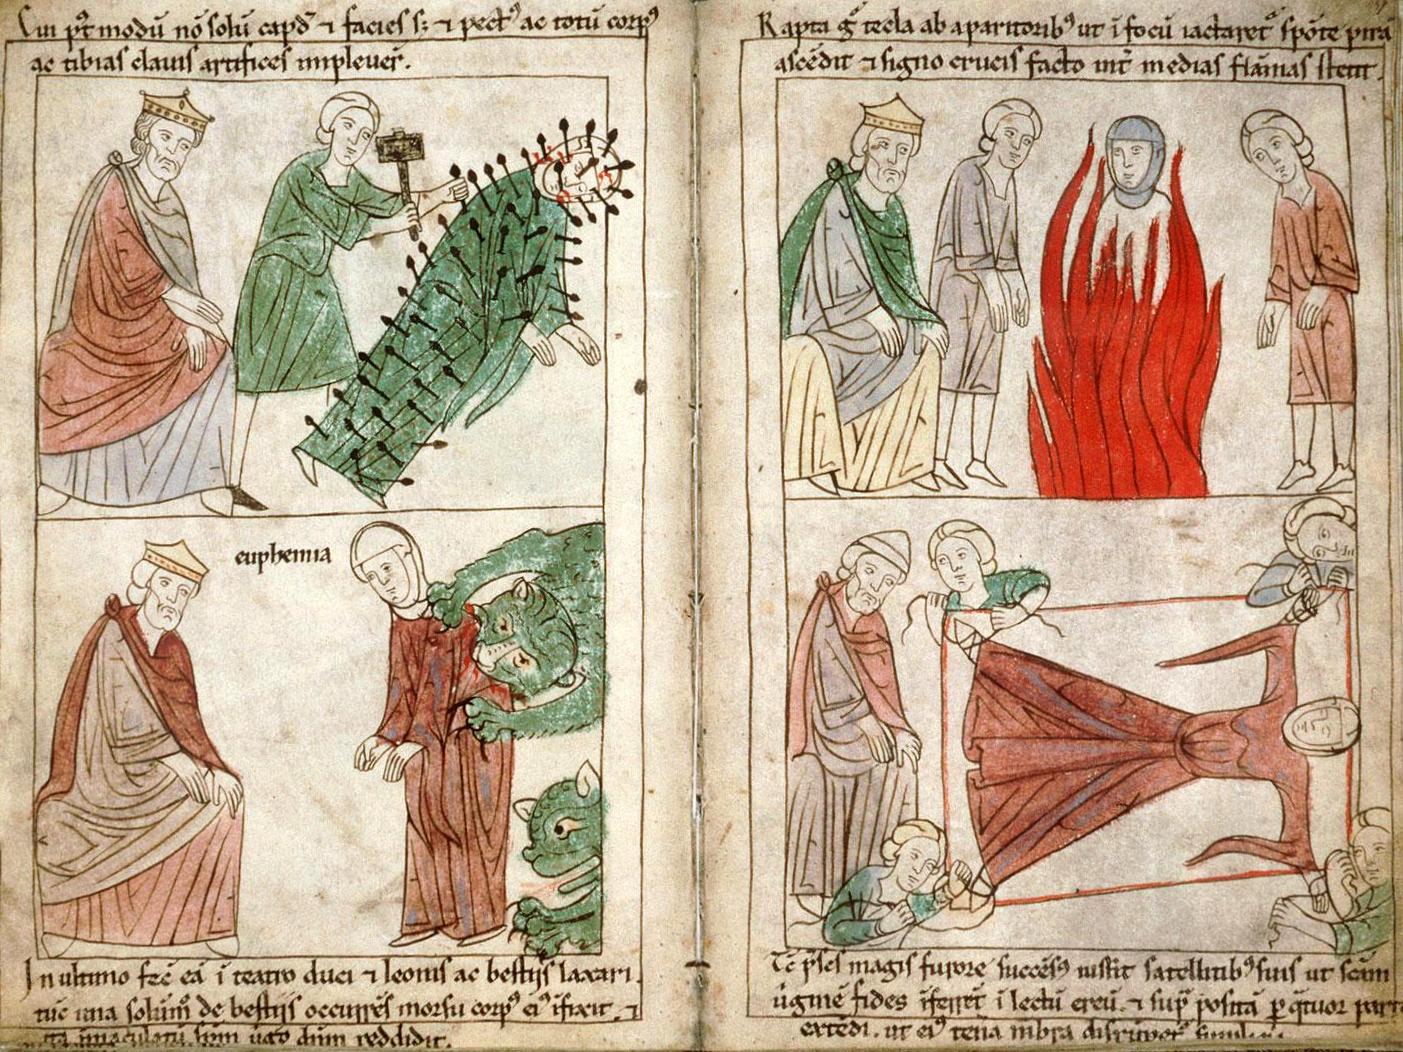 Cui pꝰt modū nō solū capđ ⁊ facies s; ⁊ pectꝰ ac totū corpꝰ
ac tibias clauis artifices impleueř.
euphemia
In ultimo fec eā ī teatro duci ⁊ leonis ac bestijs laxari.
tūc una solum de bestijs occurrēs morsu corpꝰ eiꝰ īfixit. ⁊
ita īmaculatū spm dño reddidit.
Rapta g̃ tecla ab aparitoribꝰ ut ī focū iactaret᷑ spōte pirā
ascēdit ⁊ signo crucis facto int̃ medias flāmas stetit.
Tc p̃ses magis furore succēsꝰ iussit satellitibꝰ suis ut scām
ūginē fides īferr̃et ī lectū ereū. ⁊ sup̃ positā p q̃tuor part
extēdi. ut eiꝰ tenā mbra